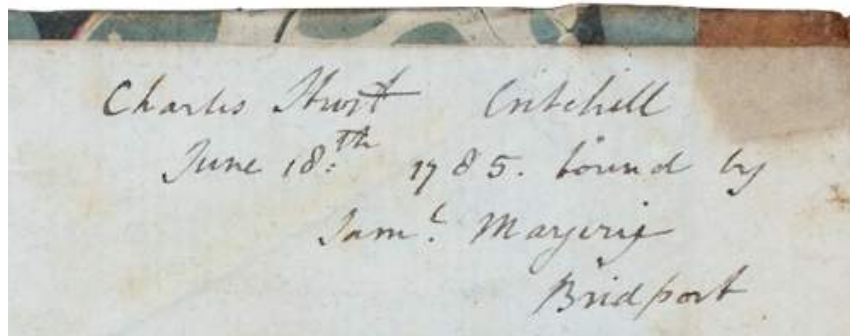 Charles Sturt Critchill
June 18:th 1785. bound by
Sam:l Margerie
Bridport